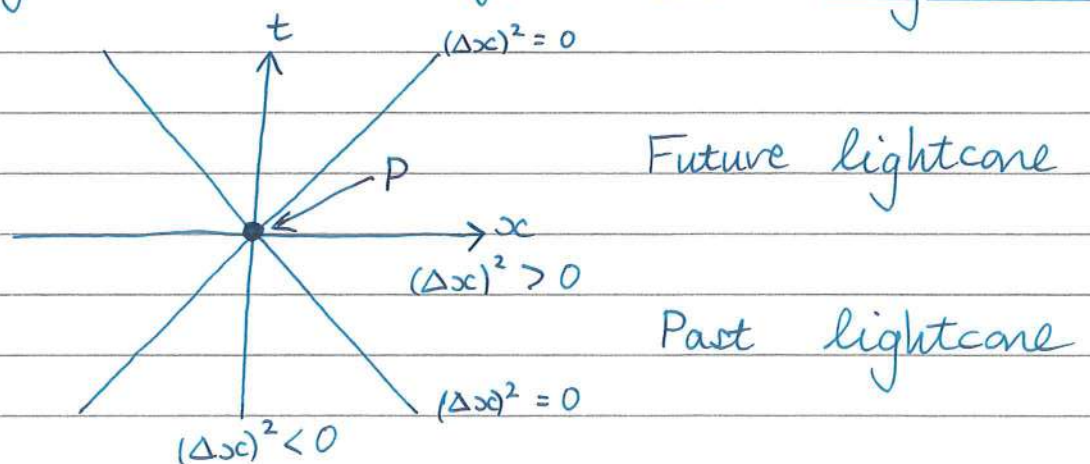 t
(Δx)² = 0
P
Future lightcone
x
(Δx)² > 0
Past lightcone
(Δx)² = 0
(Δx)² < 0